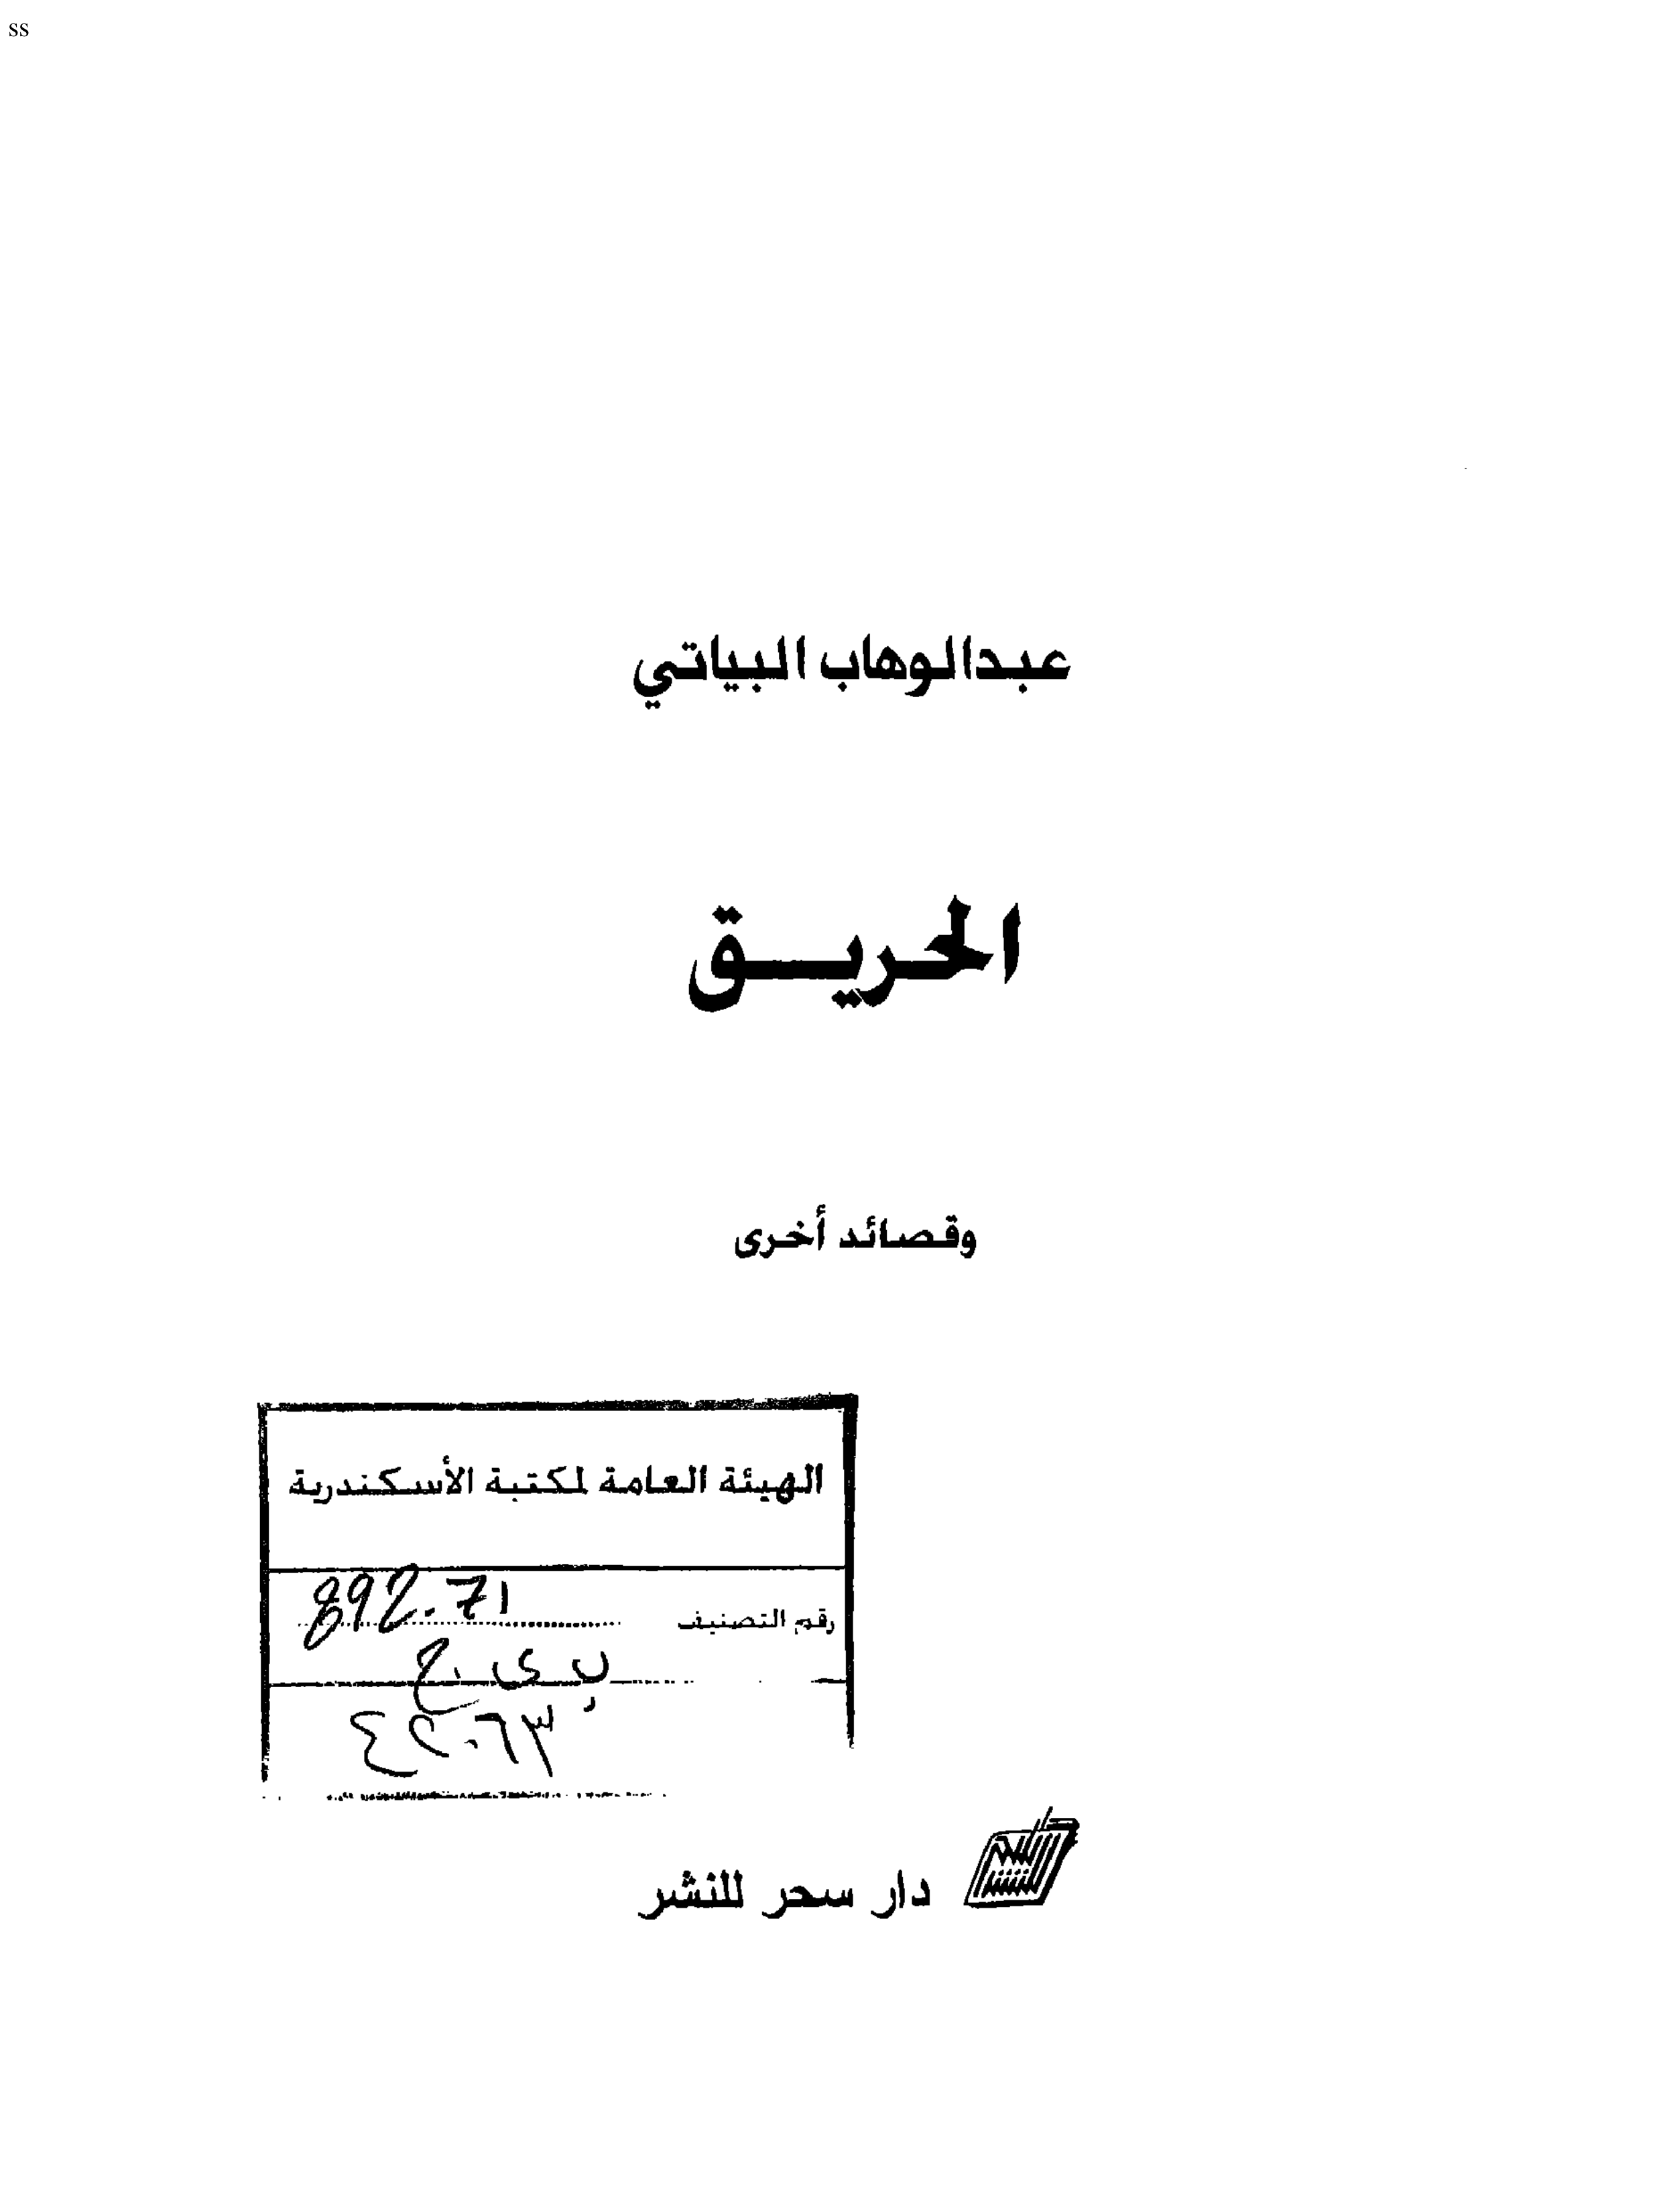 ss
عبدالوهاب البياتي
الحريق
وقصائد أخرى
الهيئة العامة لمكتبة الأسكندرية
رقم التصنيف 892.71
ب ى ح
٤٢٠٦٣
دار سحر للنشر